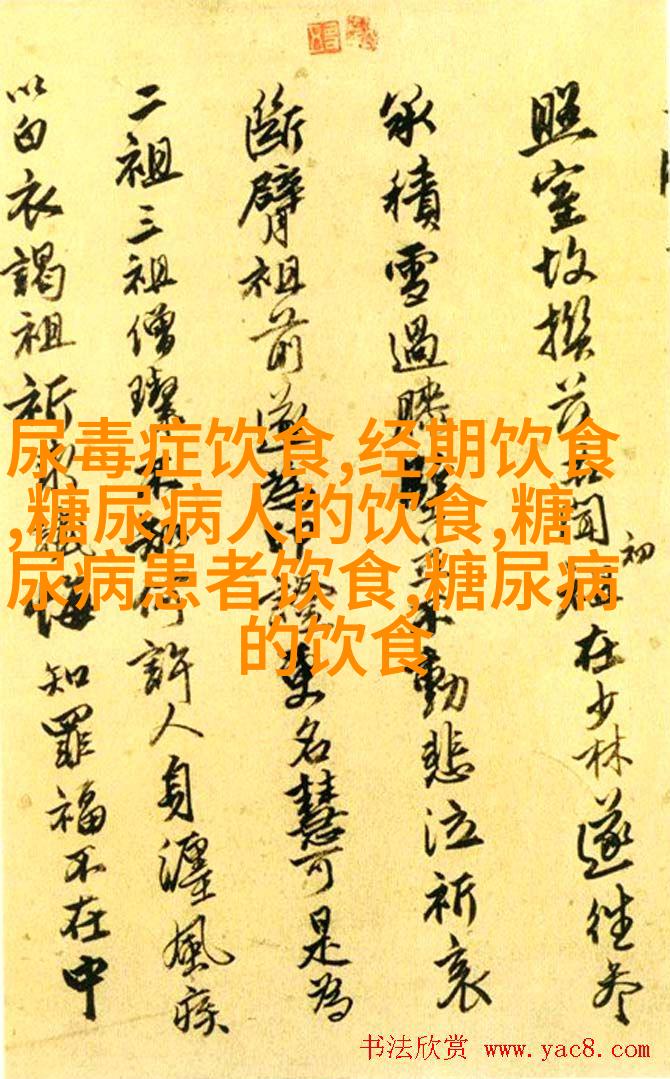 照室故撰聞初在少林遂往参
承積雪過膝立不動悲泣祈哀
斷臂祖前遂為印證更名慧可是為
二祖三祖僧璨未知何許人身纏風疾
以白衣謁祖祈求懺悔知罪福不在中
尿毒症饮食,经期饮食
,糖尿病人的饮食,糖
尿病患者饮食,糖尿病
的饮食
书法欣赏 www.yac8.com